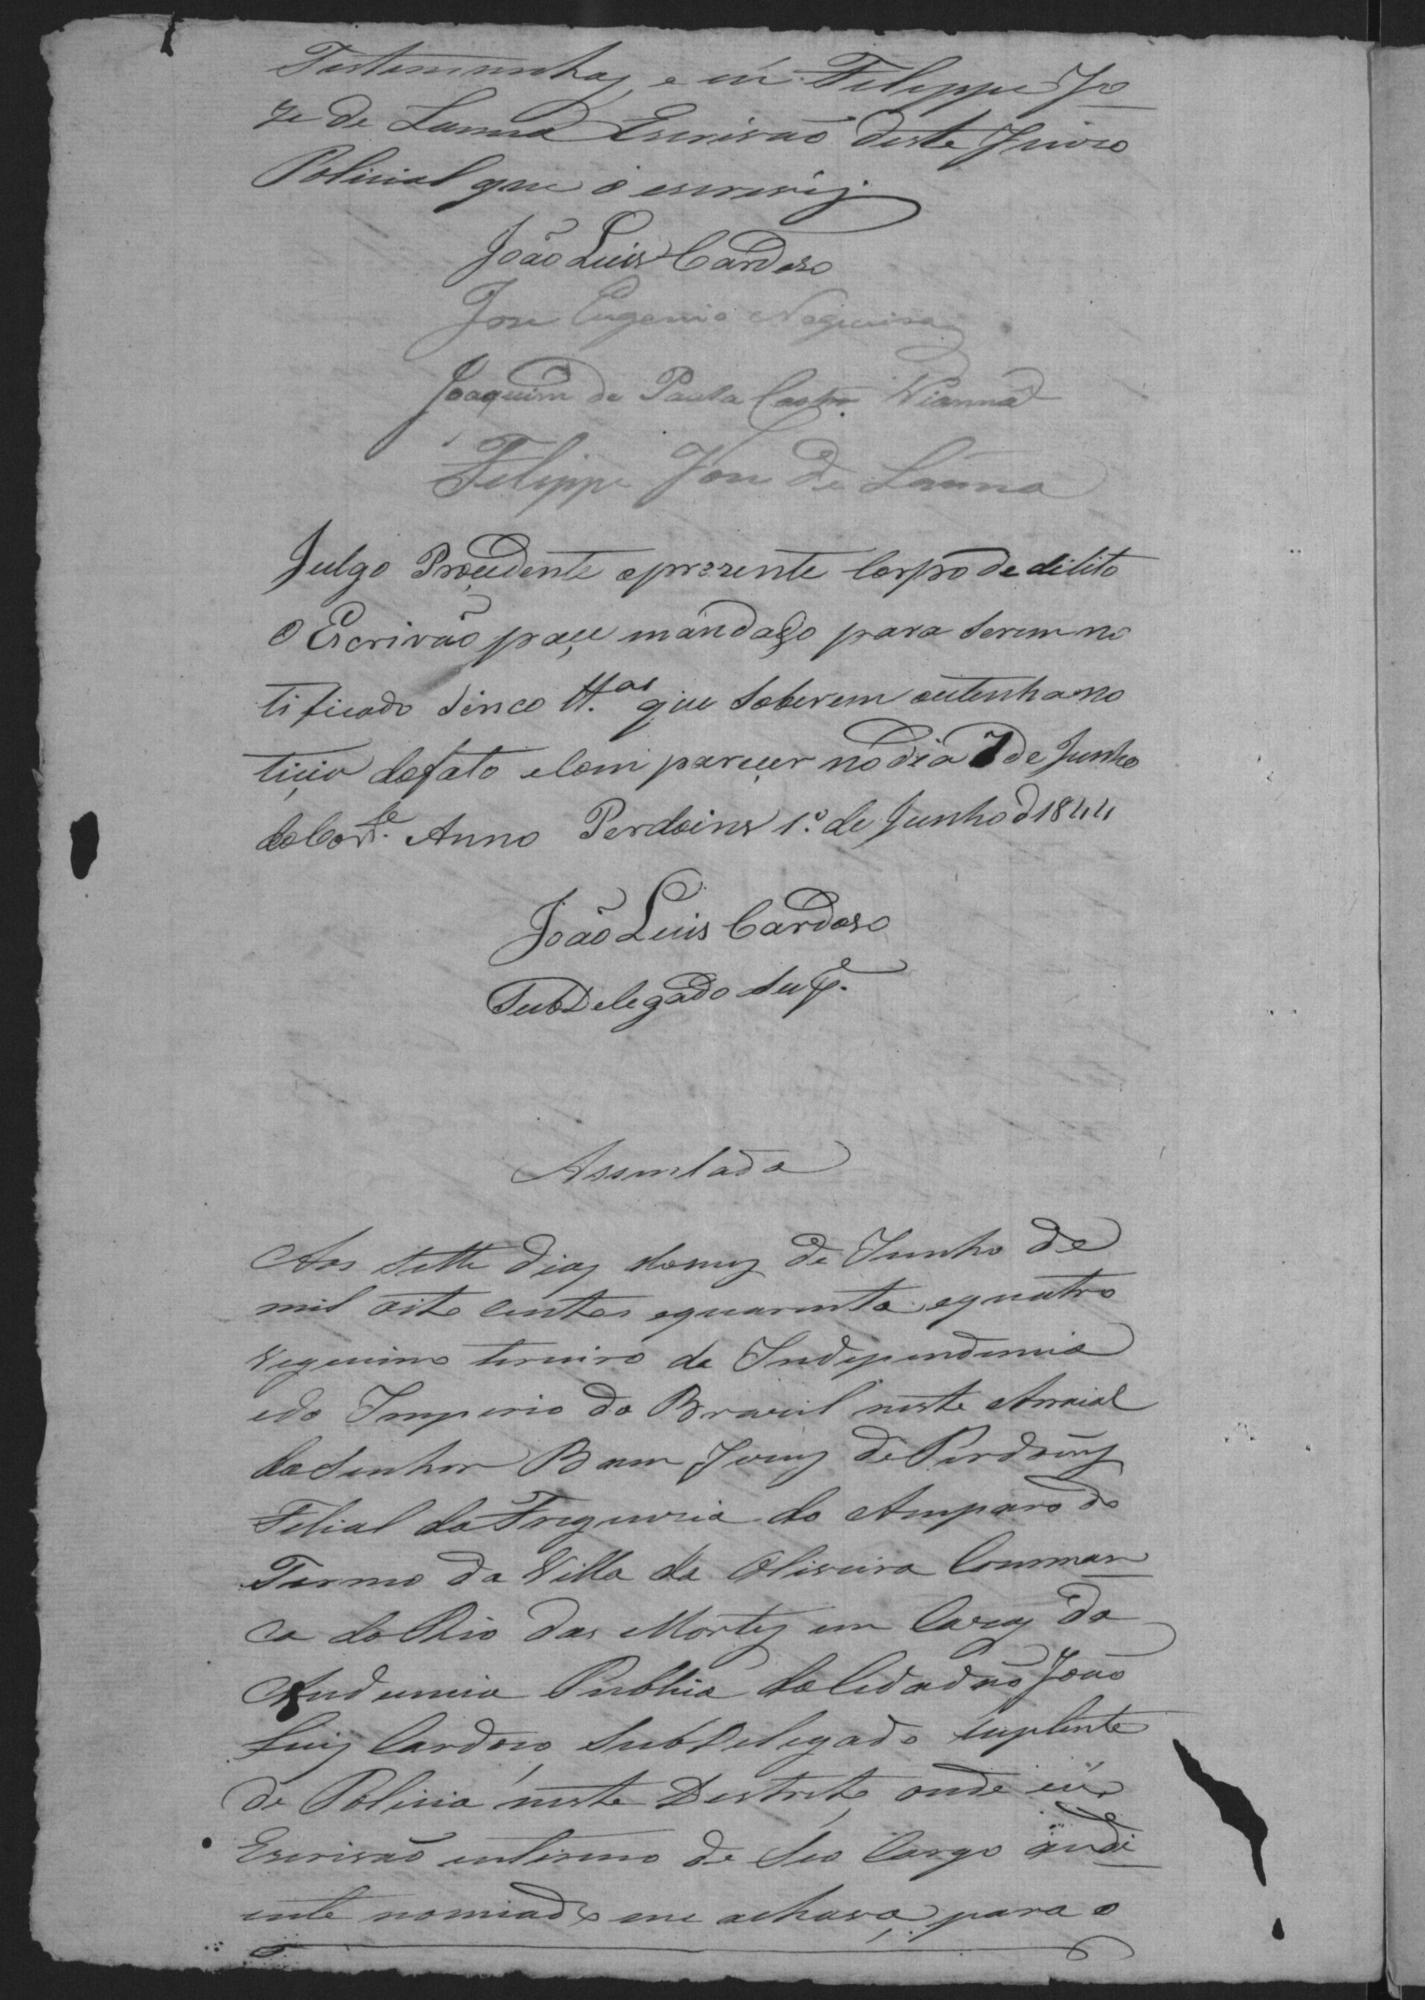 Testemunhas, e eu Filippe Jo
ze de Lanna Escrivaõ deste Juizo
Policial que o escrevi.
João Luis Cardoso
Jose Eugenio Nogueira
Joaquim de Paula Castro Vianna
Filippe Jose de Lanna
Julgo Proçedente oprezente Corpo de dilito
O Escrivão paçe mandado para serem no
tificado sinco tt.as que soberem outenha no
tiçia dofato eCompareçer no dia 7 de Junho
doCor.te Anno Perdoins 1º de Junho d 1844
João Luis Cardoso
SubDelegado Sup.e
Assentada
Aos sette dias domes de Junho de
mil oito centos equarenta equatro
Vegecimo terceiro da Independencia
edo Imperio do Brazil neste Arraial
do Senhor Bom Jesus de Perdões
Filial da Freguezia do Amparo do
Termo da Villa da Oliveira Commar
ca do Rio das Mortes em Cazas da
Audiencia Publica doCidadão João
Luis Cardozo SubDelegado suplente
de Policia neste Destrito, onde eu
Escrivaõ enterino de seo Cargo aodi
ente nomiado me achava, para o